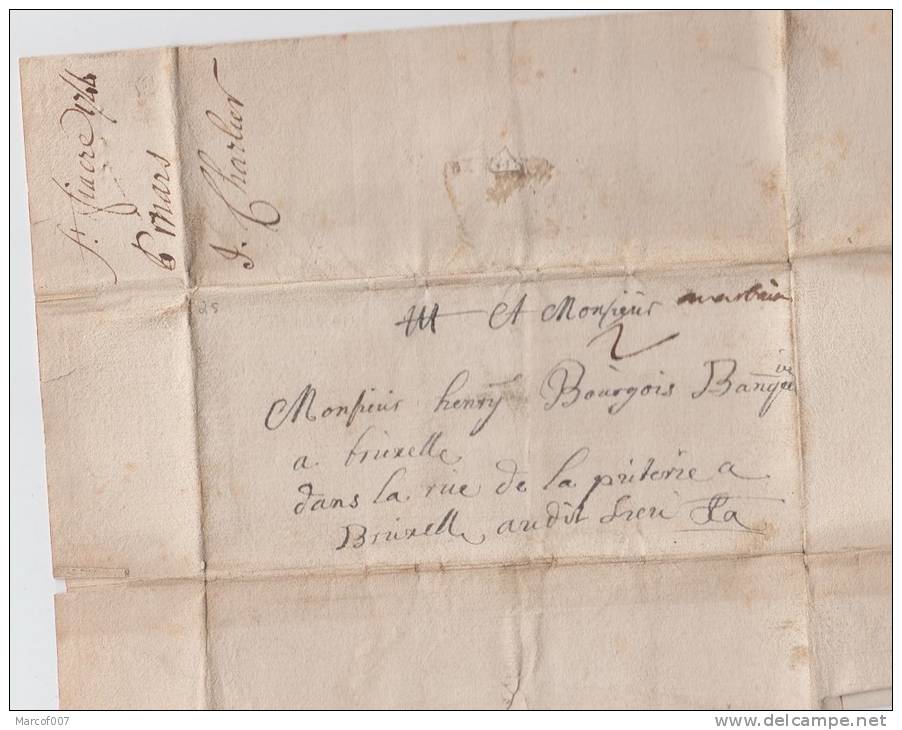 St. fiacre 1744
6 mars
J. Charlier
25
A Monsieur
2
Monsieur henry Bourgois Banquier
a bruxelle
dans la rue de la puterie a
Bruxelle audit Lieu
Marcof007
www.delcampe.net